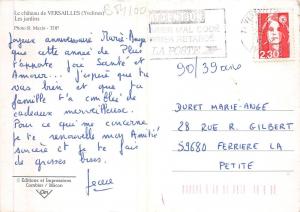 Le château de VERSAILLES (Yvelines)
Les jardins
Photo R. Mazin - TOP
BF1100
Joyeux anniversaire Marie-Ange
que cette année de Plus
t'apporte joie Santé et
Amour... J'espère que tu
vas bien et que ta
famille t'a comblée de
cadeaux merveilleuse.
Pour ce qui me concerne
je te renouvelle mon Amitié
sincère et je te fais
de grosses bises.
© Editions et Impressions
Combier / Mâcon
CODE
LA POSTE
2,30
90/39 ans
DURET MARIE-ANGE
28 RUE R. GILBERT
59680 FERRIERE LA
PETITE